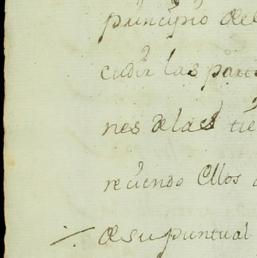 principio del
cudir las par
nes de las tie
reciendo Ellos
de su puntual